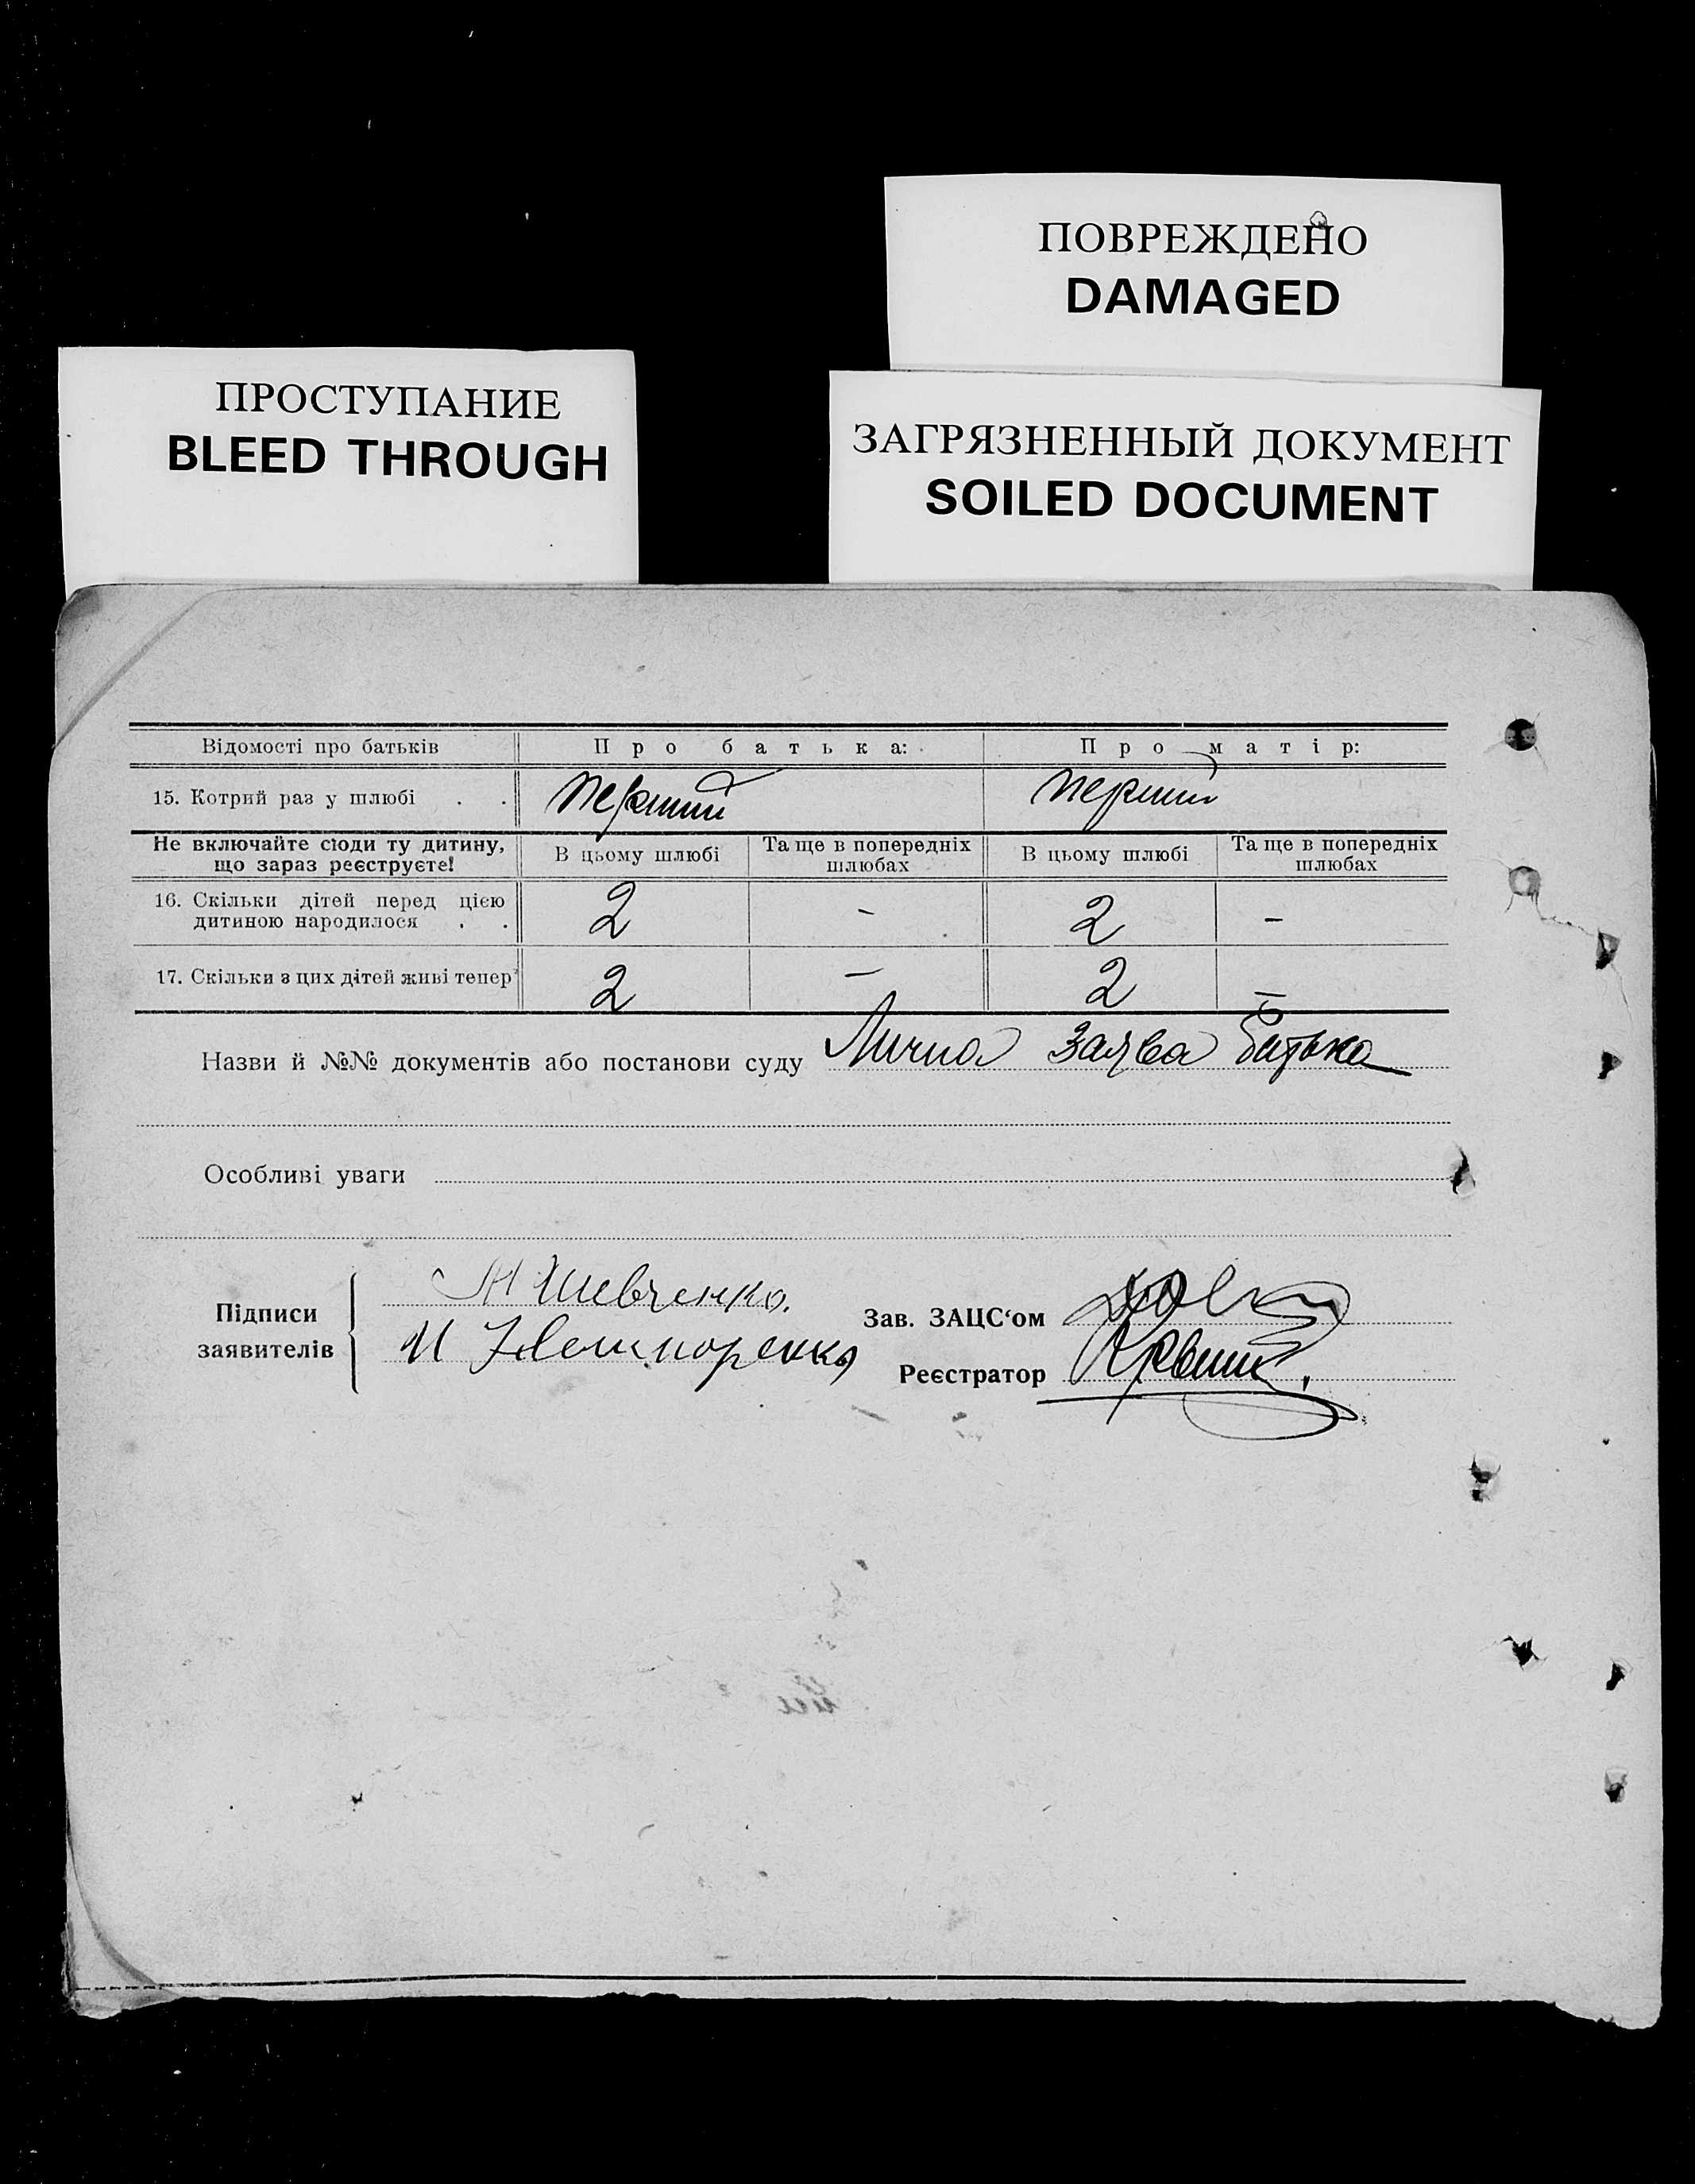 ПОВРЕЖДЕНО
DAMAGED
ПРОСТУПАНИЕ
BLEED THROUGH
ЗАГРЯЗНЕННЫЙ ДОКУМЕНТ
SOILED DOCUMENT
Відомості про батьків Про батька: Про матір:
15. Котрий раз у шлюбі . . перший перший
Не включайте сюди ту дитину, що зараз реєструєте! В цьому шлюбі Та ще в попередніх шлюбах В цьому шлюбі Та ще в попередніх шлюбах
16. Скільки дітей перед цією
дитиною народилося . . 2 - 2 -
17. Скільки з цих дітей живі тепер 2 - 2 -
Назви й №№ документів або постанови суду Лична заява батька
Особливі уваги
Підписи заявителів
Шевченко.
Зав. ЗАЦС‘ом
Реєстратор